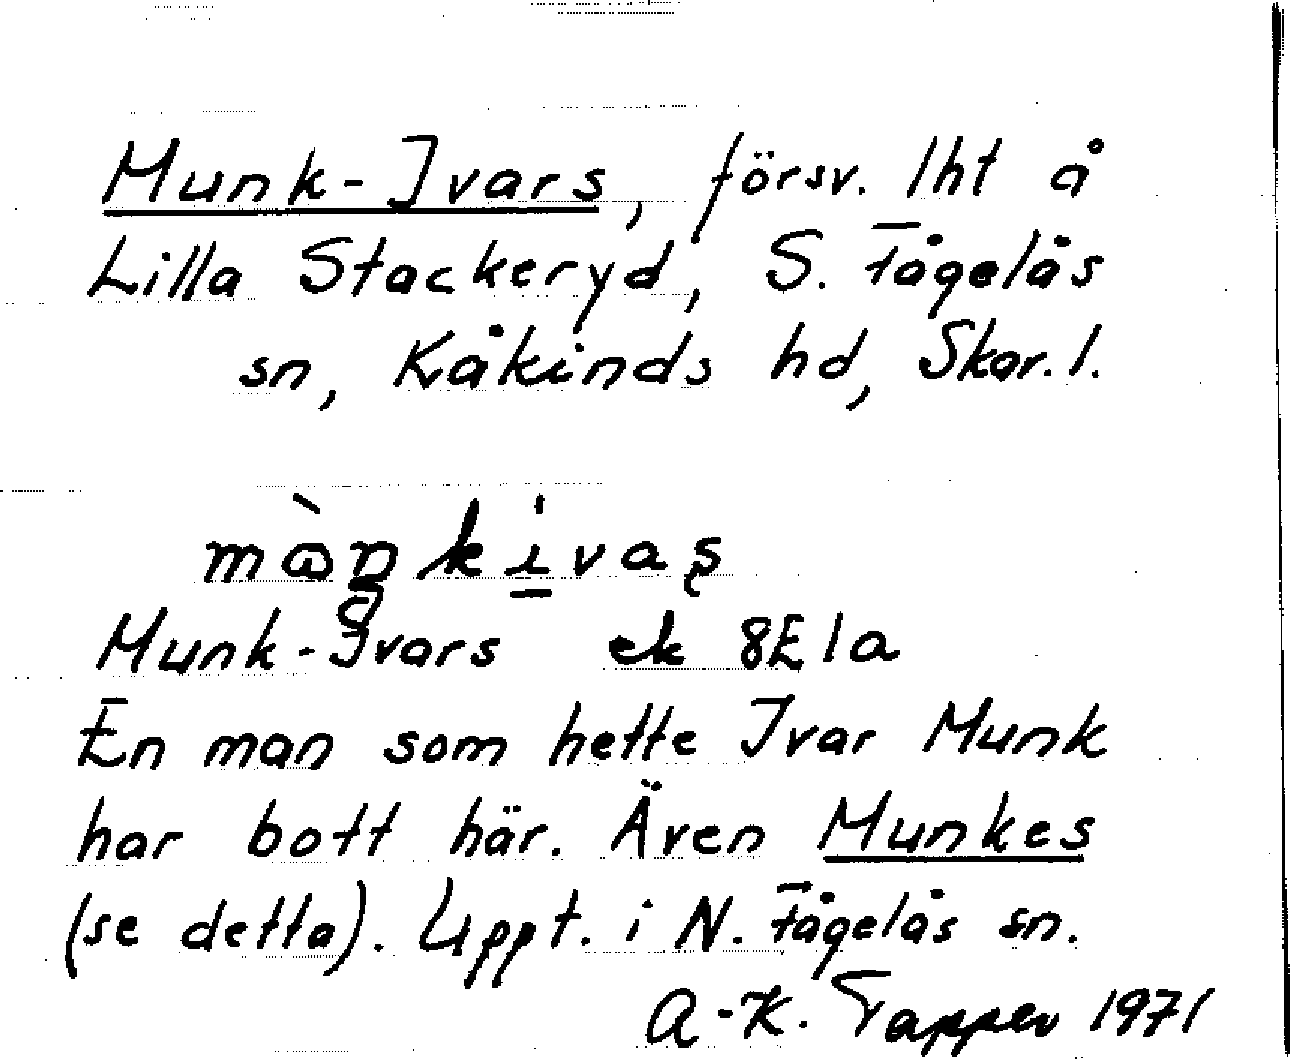 Munk-Ivars, försv. lht å
Lilla Stackeryd, S. Fågelås
sn, Kåkinds hd, Skar. l.
Munk-Ivars ek 8E1a
En man som hette Ivar Munk
har bott här. Även Munkes
(se detta). Uppt. i N. Fågelås sn.
A-K. Tapper 1971